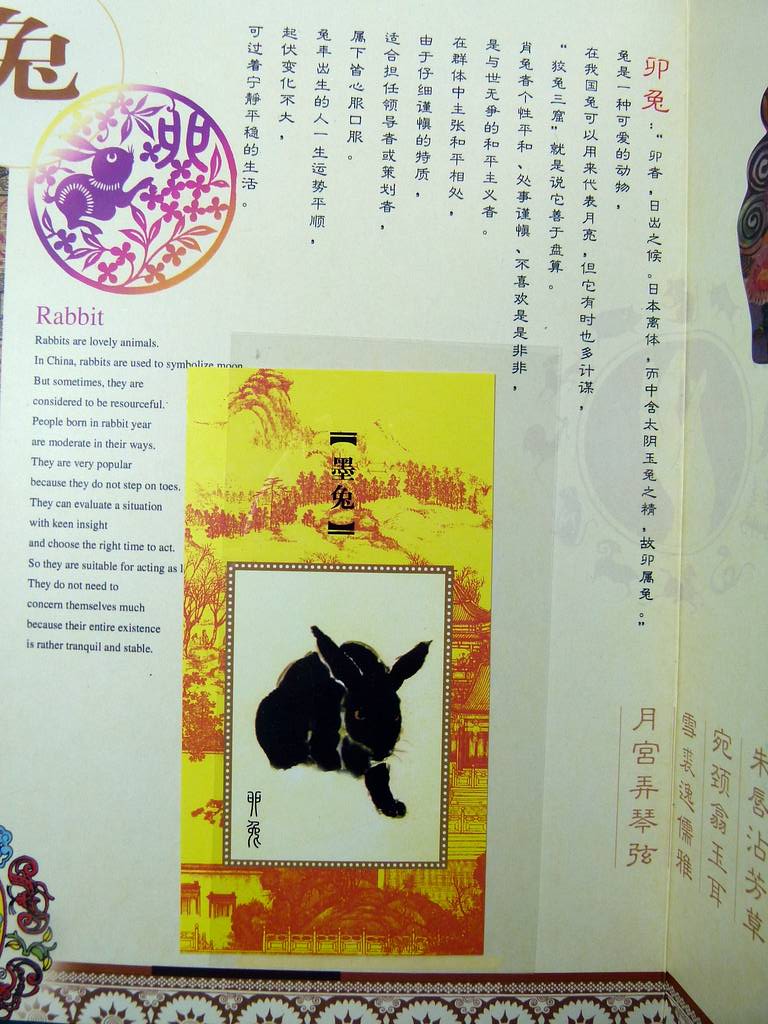 兔
卯
卯兔：“卯者，日出之候。日本离体，而中含太阴玉兔之精，故卯属兔。”
兔是一种可爱的动物，
在我国兔可以用来代表月亮，但它有时也多计谋，
“狡兔三窟”就是说它善于盘算。
肖兔者个性平和、处事谨慎、不喜欢是是非非，
是与世无争的和平主义者。
在群体中主张和平相处，
由于仔细谨慎的特质，
适合担任领导者或策划者，
属下皆心服口服。
兔年出生的人一生运势平顺，
起伏变化不大，
可过着宁静平稳的生活。
Rabbit
Rabbits are lovely animals.
In China, rabbits are used to symbolize moon.
But sometimes, they are
considered to be resourceful.
People born in rabbit year
are moderate in their ways.
They are very popular
because they do not step on toes.
They can evaluate a situation
with keen insight
and choose the right time to act.
So they are suitable for acting as
They do not need to
concern themselves much
because their entire existence
is rather tranquil and stable.
【墨兔】
卯兔
朱唇沾芳草
宛颈翕玉耳
雪裘逸儒雅
月宫弄琴弦